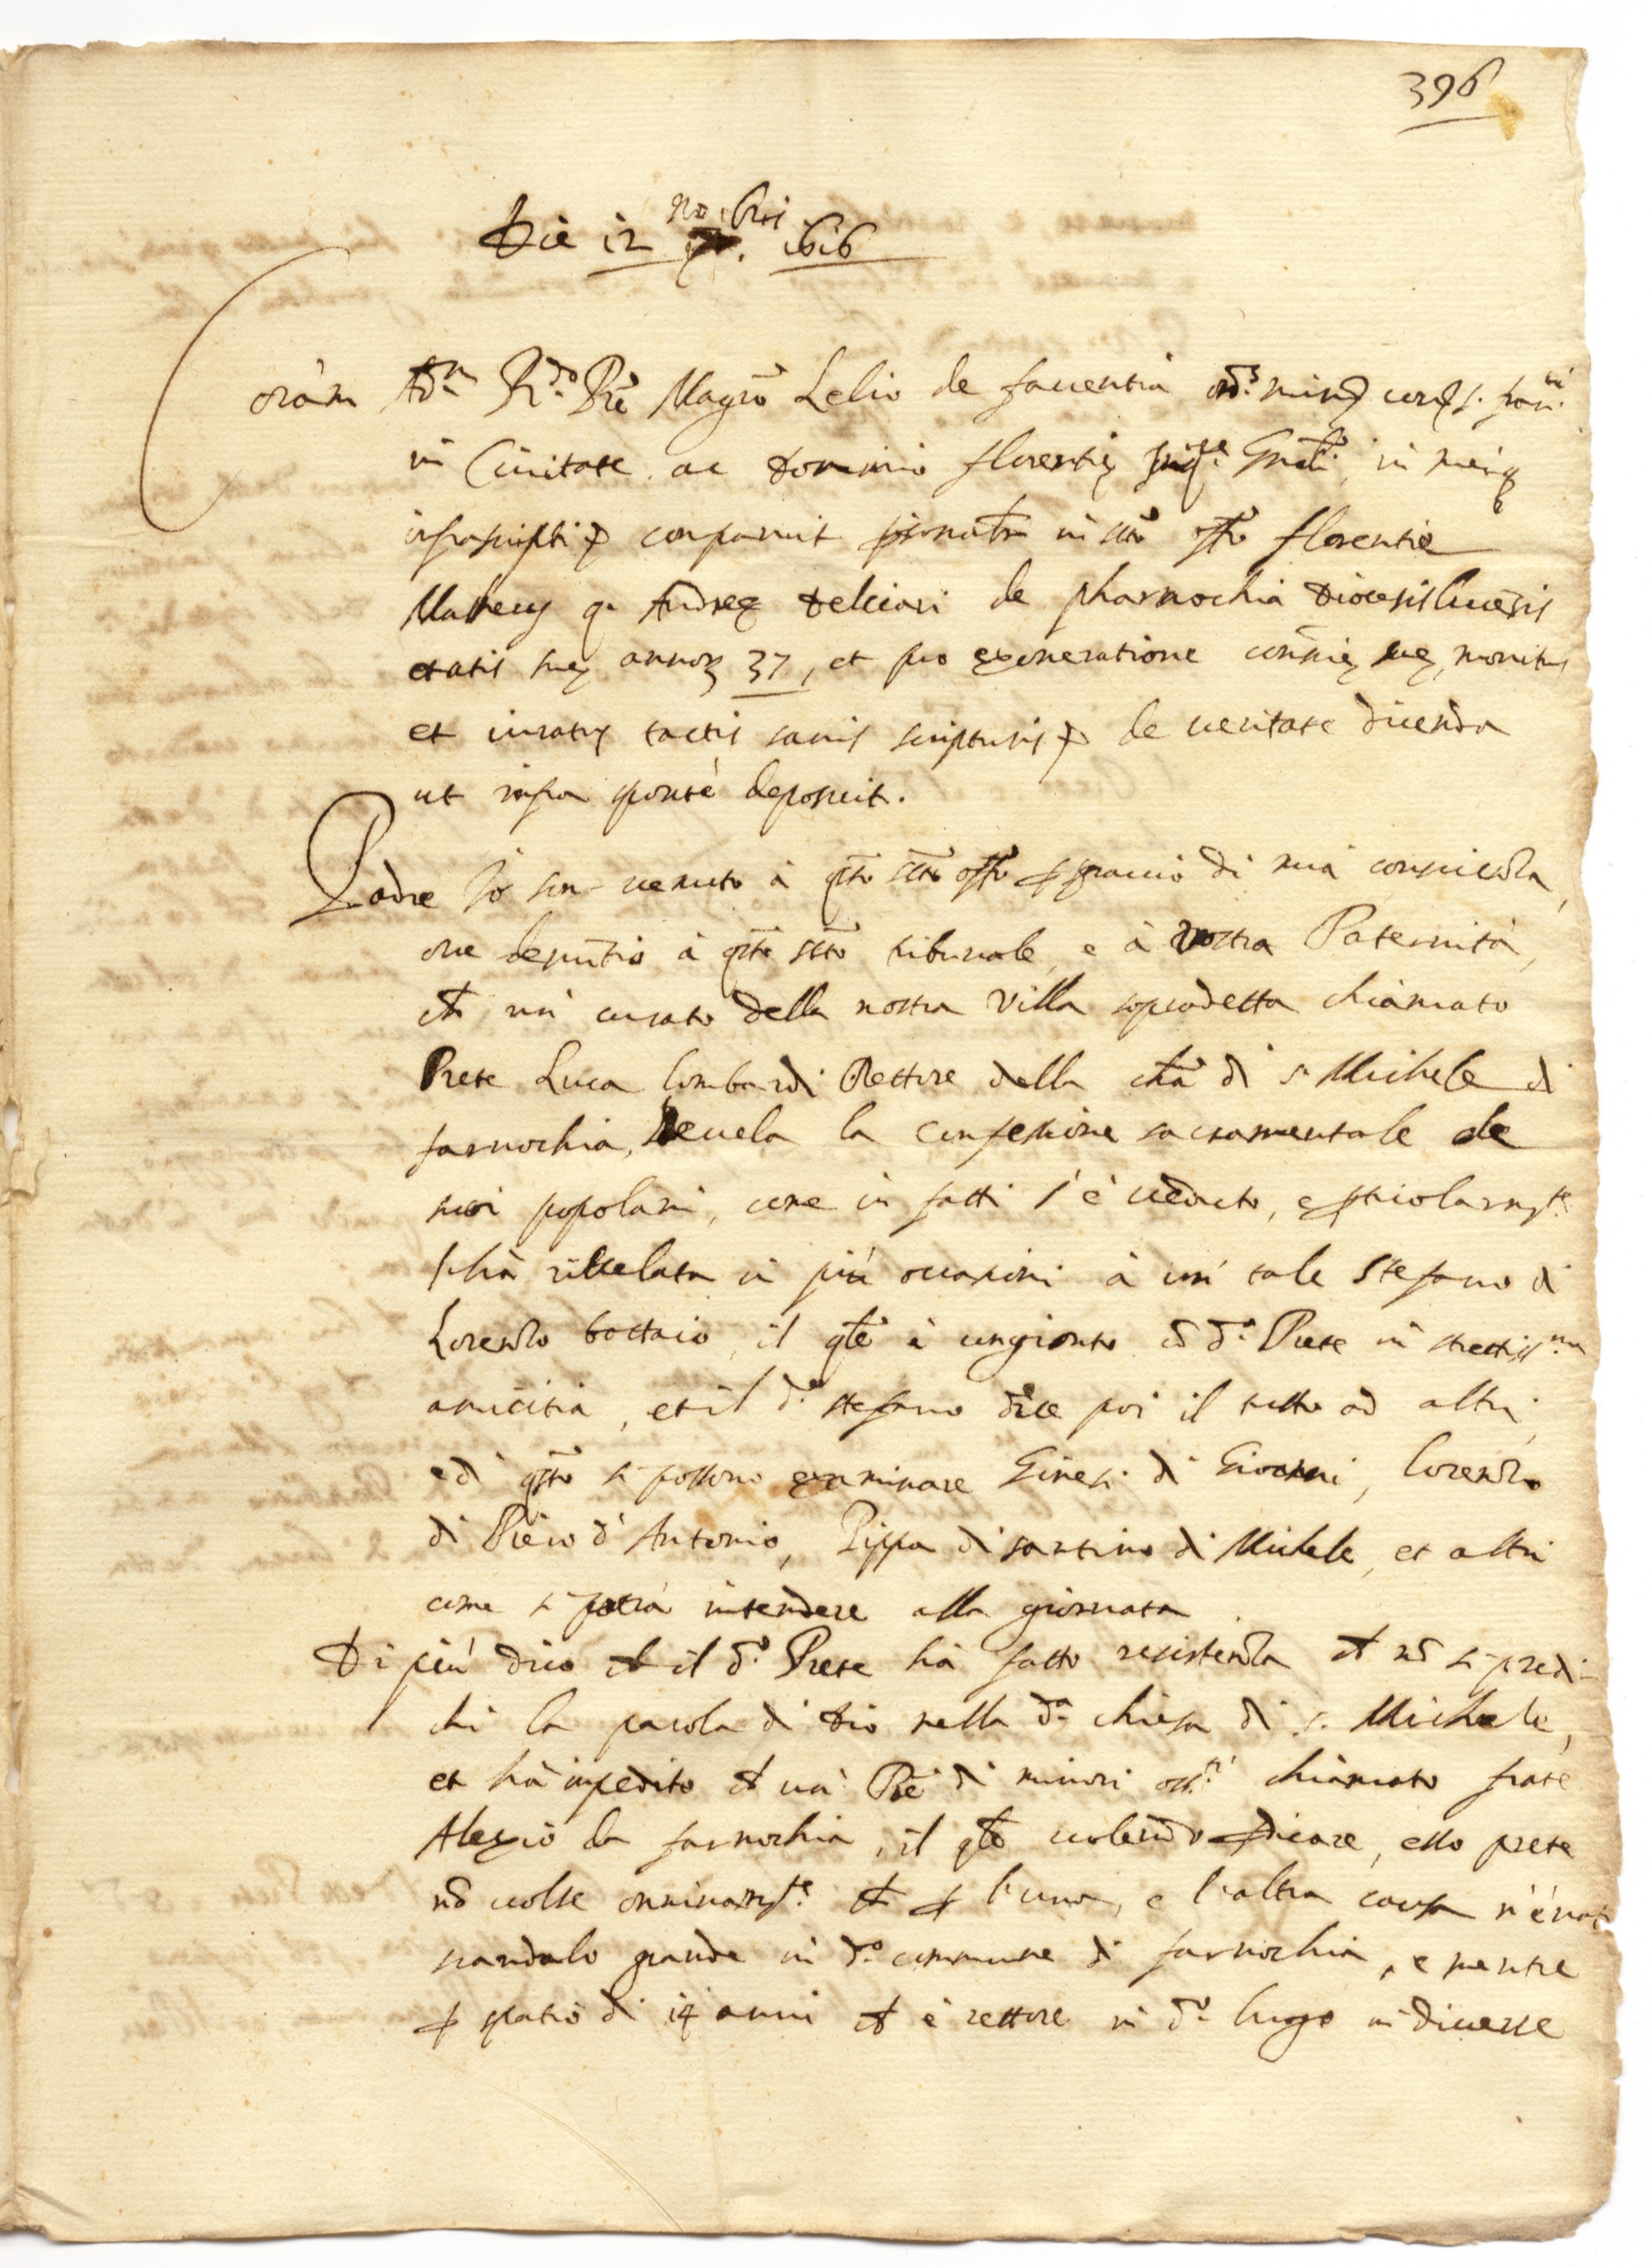 396
Die 12 no.bris 1616
Coram Adm. R.do Pre Magro Lelio de fauentia ord.s min. conv. s. fran.ci
in Ciuitate ac dominio florentie Inq.re Gnali, in meiq
infrascripti comparuit psonalr in sto offo florentie
Matheus q. Andreę de pharnochia Diocesis lucesis
etatis suę annor 37, et pro exoneratione consię suę, monitus
et iuratus tactis sacris scripturis de ueritate dicenda
ut infra sponte deposuit.
Padre Io son uenuto à qsto sto offo p sgrauio di mia conscienza,
oue denūtio à qsto sto tribunale, e à vostra Paternità,
ch un curato della nostra Villa sopradetta chiamato
Prete Luca lombardi Rettore della chā di s. Michele di
farnochia, Reuela la confessione sacramentale de
suoi popolani, come in fatti s'è ueduto, e pticolarmte
l'hà riuelata in più occasioni à un tale Stefano di
Lorenzo bottaio, il qle è congionto cō d.o Prete in strettiss.ma
amicitia, et il d.o stefano dice poi il tutto ad altri,
e di qsto si possono examinare Ginesi di Giovanni, lorenzo
di Piero d'Antonio, Pippa di santino di Michele, et altri
come si potrà intendere alla giornata.
Di più dico ch il d.o Prete hà fatto resistenza ch nō si predi-
chi la parola di Dio nella d.a chiesa di s. Michele,
et hà impedito ch un Pre di minori oss.ti chiamato frate
Alexio da farnochia, il qle uolendo pdicare, esso prete
nō uolse onninamte. ch p l'una, e l'altra causa n'è nato
scandalo grande in d.o commune di farnochia, e mentre
p spatio di 14 anni ch è rettore in d.o luogo in diuerse